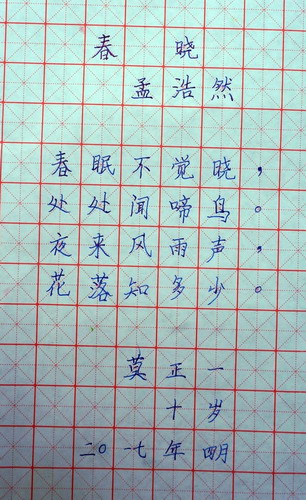 春晓
孟浩然
春眠不觉晓，
处处闻啼鸟。
夜来风雨声，
花落知多少。
莫正一
十岁
二〇一七年四月